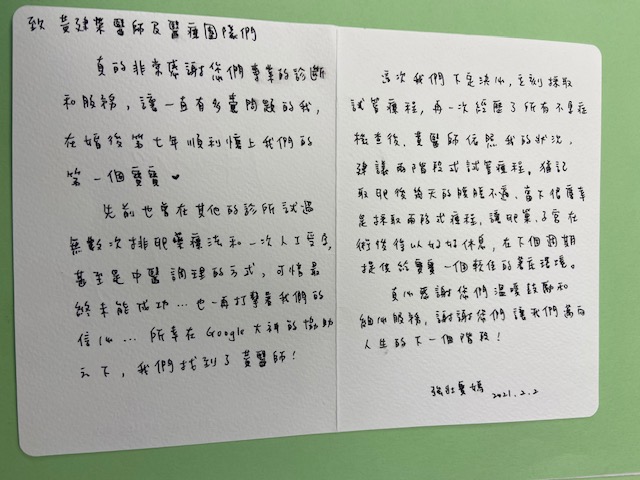 致 黃建榮醫師及醫療團隊們
真的非常感謝您們專業的診斷
和服務，讓一直有多囊問題的我，
在婚後第七年順利懷上我們的
第一個寶寶♥
先前也曾在其他的診所試過
無數次排卵藥療法和一次人工受孕，
甚至是中醫調理的方式，可惜最
終未能成功…也一再打擊著我們的
信心…所幸在Google大神的協助
之下，我們找到了黃醫師！
這次我們下定決心，立刻採取
試管療程，再一次經歷了所有不孕症
檢查後，黃醫師依照我的狀況，
建議兩階段式試管療程。猶記
取卵後幾天的腹脹不適，當下倍慶幸
是採取兩段式療程，讓卵巢、子宮在
術後得以好好休息，在下個週期
提供給寶寶一個較佳的著床環境。
真心感謝您們溫暖鼓勵和
細心服務，謝謝您們讓我們邁向
人生的下一個階段！
張 寶媽 2021.2.2